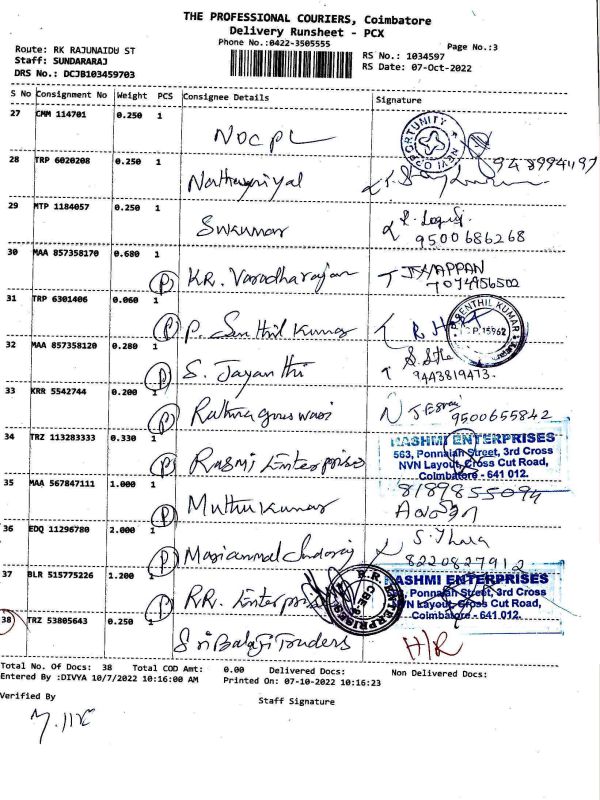 THE PROFESSIONAL COURIERS, Coimbatore
Delivery Runsheet - PCX
Phone No.:0422-3505555
Page No.:3
Route: RK RAJUNAIDU ST
Staff: SUNDARARAJ
DRS No.: DCJB103459703
RS No.: 1034597
RS Date: 07-Oct-2022
S No Consignment No Weight PCS Consignee Details Signature
27 CMM 114701 0.250 1 NOCPL
OPPORTUNITY
28 TRP 6020208 0.250 1
29 MTP 1184057 0.250 1 Sukumar
9500686268
30 MAA 857358170 0.680 1 P KR. Varadharajan
7074956502
31 TRP 6301406 0.060 1 P P. Senthil Kumar
SENTHIL KUMAR
32 MAA 857358120 0.280 1 P S. Jayanthi
9443819473.
33 KRR 5542744 0.200 1 P
9500655842
34 TRZ 113283333 0.330 1 P Rasmi Enterprises
RASHMI ENTERPRISES
563, Ponnaiah Street, 3rd Cross
NVN Layout, Cross Cut Road,
Coimbatore - 641 012.
35 MAA 567847111 1.000 1 P Muthu Kumar
8189855094
36 EDQ 11296780 2.000 1 P
8220827912
37 BLR 515775226 1.200 1 P RR. Enterprises
R.R. ENTERPRISES
CBE-12
RASHMI ENTERPRISES
, Ponnaiah Street, 3rd Cross
NVN Layout, Cross Cut Road,
Coimbatore - 641 012.
38 TRZ 53805643 0.250 1 Sri Balaji Traders H/R
Total No. Of Docs: 38 Total COD Amt: 0.00 Delivered Docs: Non Delivered Docs:
Entered By :DIVYA 10/7/2022 10:16:00 AM Printed On: 07-10-2022 10:16:23
Verified By
Staff Signature